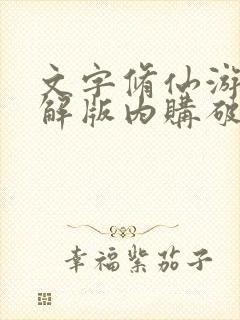 文字脩仙游
解版内購破
幸福紫茄子